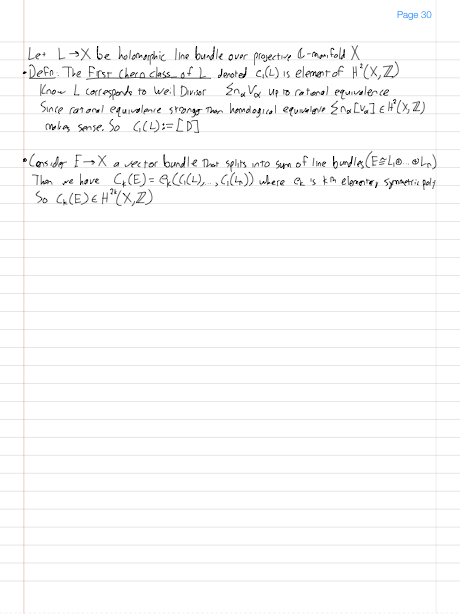 Page 30
Let L → X be holomorphic line bundle over projective ℂ-manifold X
• Defn: The First chern class of L denoted c₁(L) is element of H²(X,ℤ)
Know L corresponds to Weil Divisor Σn_αV_α up to rational equivalence
Since rational equivalence stronger than homological equivalence Σn_α[V_α] ∈ H²(X,ℤ)
makes sense. So C₁(L) := [D]
• Consider E → X a vector bundle that splits into sum of line bundles (E ≅ L₁⊕...⊕L_n)
Then we have C_k(E) = e_k(C₁(L₁),...,C₁(L_n)) where e_k is kth elementary symmetric poly
So C_k(E) ∈ H²ᵏ(X,ℤ)